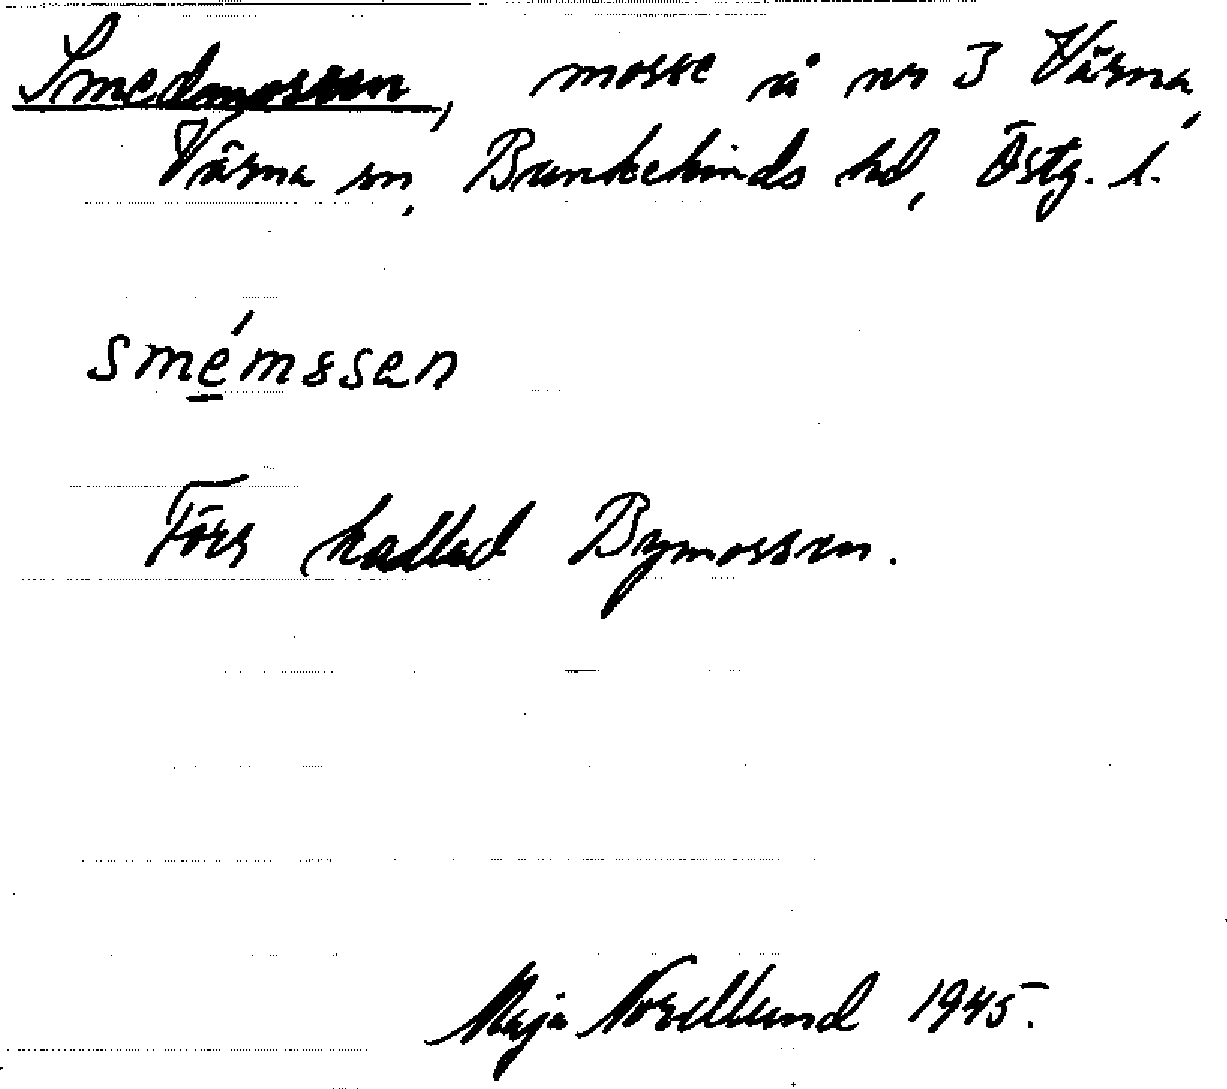 Smedmossen, mosse å nr 3 Värna,
Värna sn, Bankekinds hd, Östg. l.
smémssen
Förr kallad Bymossen.
Maja Nordlund 1945.